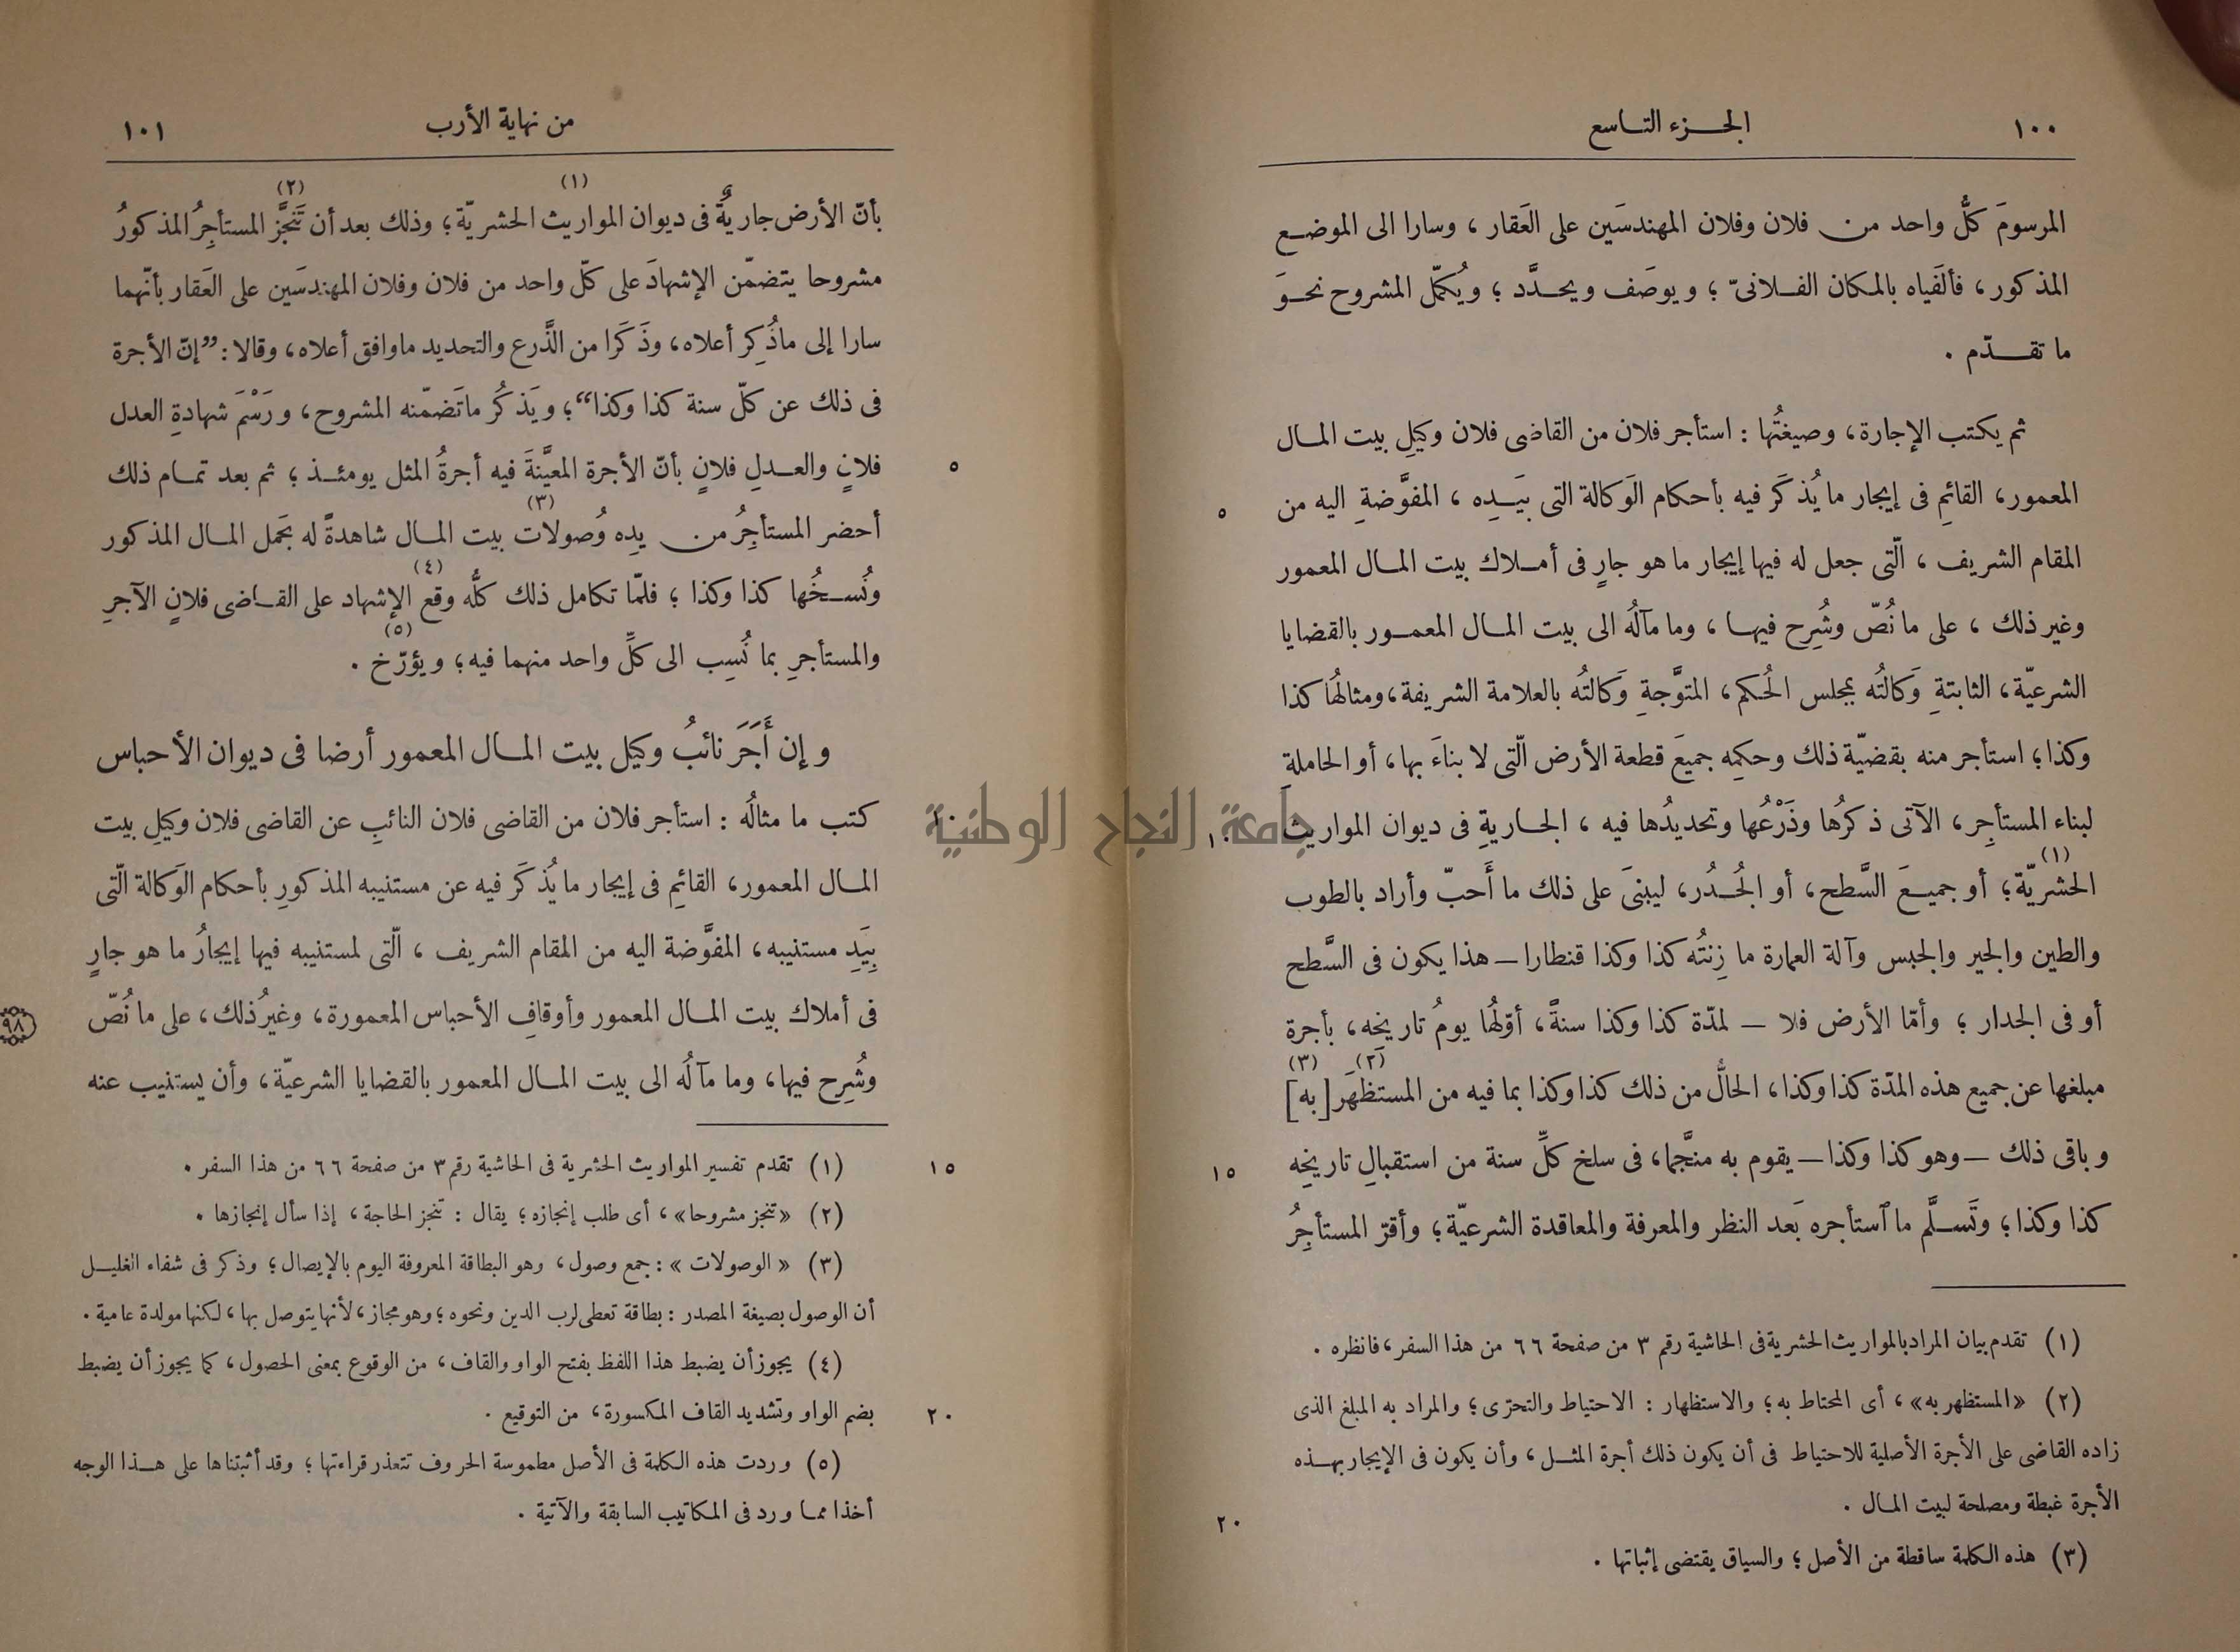 ١٠٠ الجزء التاسع
المرسومَ كلُّ واحد من فلان وفلان المهندسَين على العَقار، وسارا الى الموضع
المذكور، فألفَياه بالمكان الفلانىّ؛ ويوصَف ويحدَّد؛ ويُكمّل المشروح نحوَ
ما تقدّم.
ثم يكتب الإجارة، وصيغتُها: استأجر فلان من القاضى فلان وكيلِ بيت المال
المعمور، القائمِ فى إيجار ما يُذكَر فيه بأحكام الوَكالة التى بيَدِه، المفوَّضةِ اليه من ٥
المقام الشريف، الّتى جعل له فيها إيجار ما هو جارٍ فى أملاك بيت المال المعمور
وغير ذلك، على ما نُصّ وشُرِح فيها، وما مآلُه الى بيت المال المعمور بالقضايا
الشرعيّة، الثابتةِ وَكالتُه بمجلس الحُكم، المتوَّجةِ وَكالتُه بالعلامة الشريفة، ومثالهُا كذا
وكذا؛ استأجر منه بقضيّة ذلك وحكمِه جميعَ قطعة الأرض الّتى لا بناءَ بها، أو الحاملةِ
لبناء المستأجِر، الآتى ذكرُها وذَرْعُها وتحديدُها فيه، الجاريةِ فى ديوان المواريث ١٠
الحشريّة(١)؛ أو جميعَ السَّطح، أو الجُدُر، ليبنىَ على ذلك ما أَحبّ وأراد بالطوب
والطين والجير والجبس وآلة العمارة ما زِنتُه كذا وكذا قنطارا — هذا يكون فى السَّطح
أو فى الجدار؛ وأمّا الأرض فلا — لمدّة كذا وكذا سنةً، أوّلهُا يومُ تاريخه، بأجرة
مبلغها عن جميع هذه المدّة كذا وكذا، الحالُّ من ذلك كذا وكذا بما فيه من المستظهَر(٢) [به](٣)
وباقى ذلك — وهو كذا وكذا — يقوم به منجَّما، فى سلخ كلِّ سنة من استقبالِ تاريخِه ١٥
كذا وكذا؛ وتَسلَّم ما ٱستأجره بَعد النظر والمعرفة والمعاقدة الشرعيّة؛ وأقرّ المستأجِرُ
(١) تقدم بيان المراد بالمواريث الحشرية فى الحاشية رقم ٣ من صفحة ٦٦ من هذا السفر، فانظره.
(٢) «المستظهر به»، أى المحتاط به؛ والاستظهار: الاحتياط والتحرّى؛ والمراد به المبلغ الذى
زاده القاضى على الأجرة الأصلية للاحتياط فى أن يكون ذلك أجرة المثل، وأن يكون فى الإيجار بهذه
الأجرة غبطة ومصلحة لبيت المال. ٢٠
(٣) هذه الكلمة ساقطة من الأصل؛ والسياق يقتضى إثباتها.
من نهاية الأرب ١٠١
بأنّ الأرض جاريةٌ فى ديوان المواريث الحشريّة(١)؛ وذلك بعد أن تَنَجَّز(٢) المستأجِرُ المذكورُ
مشروحا يتضمّن الإشهادَ على كلّ واحد من فلان وفلان المهندسَين على العَقار بأنّهما
سارا إلى ماذُكِر أعلاه، وذَكَرا من الذَّرع والتحديد ماوافق أعلاه، وقالا: ”إنّ الأجرة
فى ذلك عن كلّ سنة كذا وكذا“؛ ويَذكُر ماتَضمّنه المشروح، ورَسْمَ شهادةِ العدل
فلانٍ والعدلِ فلانٍ بأنّ الأجرة المعيَّنةَ فيه أجرةُ المثل يومئذ؛ ثم بعد تمام ذلك ٥
أحضر المستأجِرُ من يدِه وُصولات(٣) بيت المال شاهدةً له بحَمل المال المذكور
ونُسخُها كذا وكذا؛ فلمّا تكامل ذلك كلُّه وقع(٤) الإشهاد على القاضى فلانٍ الآجرِ
والمستأجرِ بما نُسِب الى كلِّ واحد منهما فيه؛ ويؤرّخ(٥).
وإن أَجَرَ نائبُ وكيل بيت المال المعمور أرضا فى ديوان الأحباس
كتب ما مثالُه: استأجر فلان من القاضى فلان النائبِ عن القاضى فلان وكيلِ بيت ١٠
المال المعمور، القائمِ فى إيجار ما يُذكَر فيه عن مستنيبه المذكورِ بأحكام الوَكالة الّتى
بِيَدِ مستنيبه، المفوَّضة اليه من المقام الشريف، الّتى لمستنيبه فيها إيجارُ ما هو جارٍ
فى أملاك بيت المال المعمور وأوقافِ الأحباس المعمورة، وغيرُ ذلك، على ما نُصّ ٩٨
وشُرِح فيها، وما مآلُه الى بيت المال المعمور بالقضايا الشرعيّة، وأن يستنيب عنه
(١) تقدم تفسير المواريث الحشرية فى الحاشية رقم ٣ من صفحة ٦٦ من هذا السفر. ١٥
(٢) «تنجز مشروحا»، أى طلب إنجازه؛ يقال: تنجز الحاجة، إذا سأل إنجازها.
(٣) «الوصولات»: جمع وصول، وهو البطاقة المعروفة اليوم بالإيصال؛ وذكر فى شفاء الغليل
أن الوصول بصيغة المصدر: بطاقة تعطى لرب الدين ونحوه؛ وهو مجاز، لأنها يتوصل بها، لكنها مولدة عامية.
(٤) يجوز أن يضبط هذا اللفظ بفتح الواو والقاف، من الوقوع بمعنى الحصول، كما يجوز أن يضبط
بضم الواو وتشديد القاف المكسورة، من التوقيع. ٢٠
(٥) وردت هذه الكلمة فى الأصل مطموسة الحروف تتعذر قراءتها؛ وقد أثبتناها على هذا الوجه
أخذا مما ورد فى المكاتيب السابقة والآتية.
جامعة النجاح الوطنية